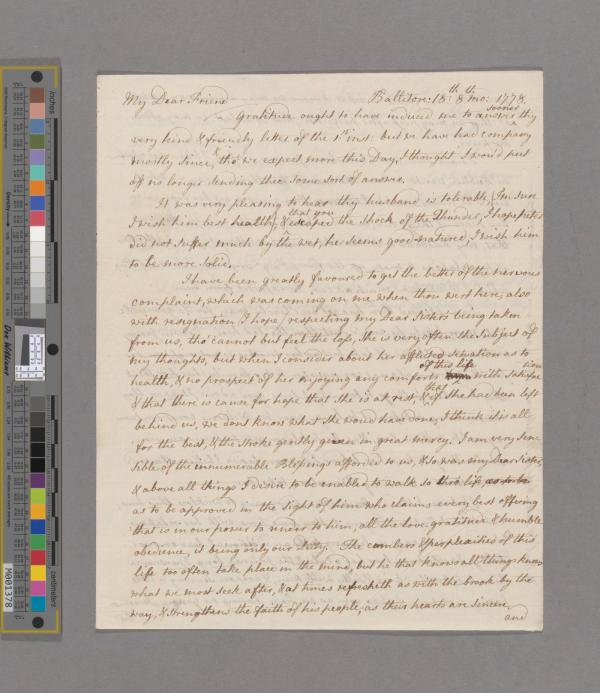 My Dear Friend Baltifore: 18th 8th mo: 1778.
Gratitude ought to have induced me to answer sooner thy
very kind & friendly letter of the 1st inst: but we have had company
mostly since, & tho' we expect more this Day, I thought I wou'd put
off no longer sending thee some sort of answer.
It was very pleasing to hear thy husband is tolerable, I'm sure
I wish him best health, & that you escaped the Shock of the Thunder, I hope
did not suffer much by the wet, he seems good natured, I wish him
to be more Solid.
I have been greatly favoured to get the better of the nervous
complaint, which was coming on me when thou wert here; also
with resignation I hope, respecting my Dear Sister's being taken
from us, tho' cannot but feel the loss, She is very often the Subject of
my thoughts, but when I consider about her afflicted situation as to
health, & no prospect of her enjoying any comforts of this life with Satisfaction
& that there is cause for hope that She is at rest, & that if She had been left
behind us, we dont know what She wou'd have done, I think it is all
for the best, & the Stroke gently given in great mercy. I am very Sen-
sible of the innumerable Blessings afforded to us, & so was my Dear Sister,
& above all things I desire to be enabled to walk so thro' life,
as to be approved in the Sight of him who claims every best offering
that is in our power to render to him, all the love, gratitude & humble
obedience, it being only our Duty. The cumbers & perplexities of this
life too often take place in the mind, but he that knows all things knows
what we most seek after, & at times refresheth as with the brook by the
way, & strengthens the faith of his people, as their hearts are Sincere,
and
inches
centimeters
Don Williams
M001378